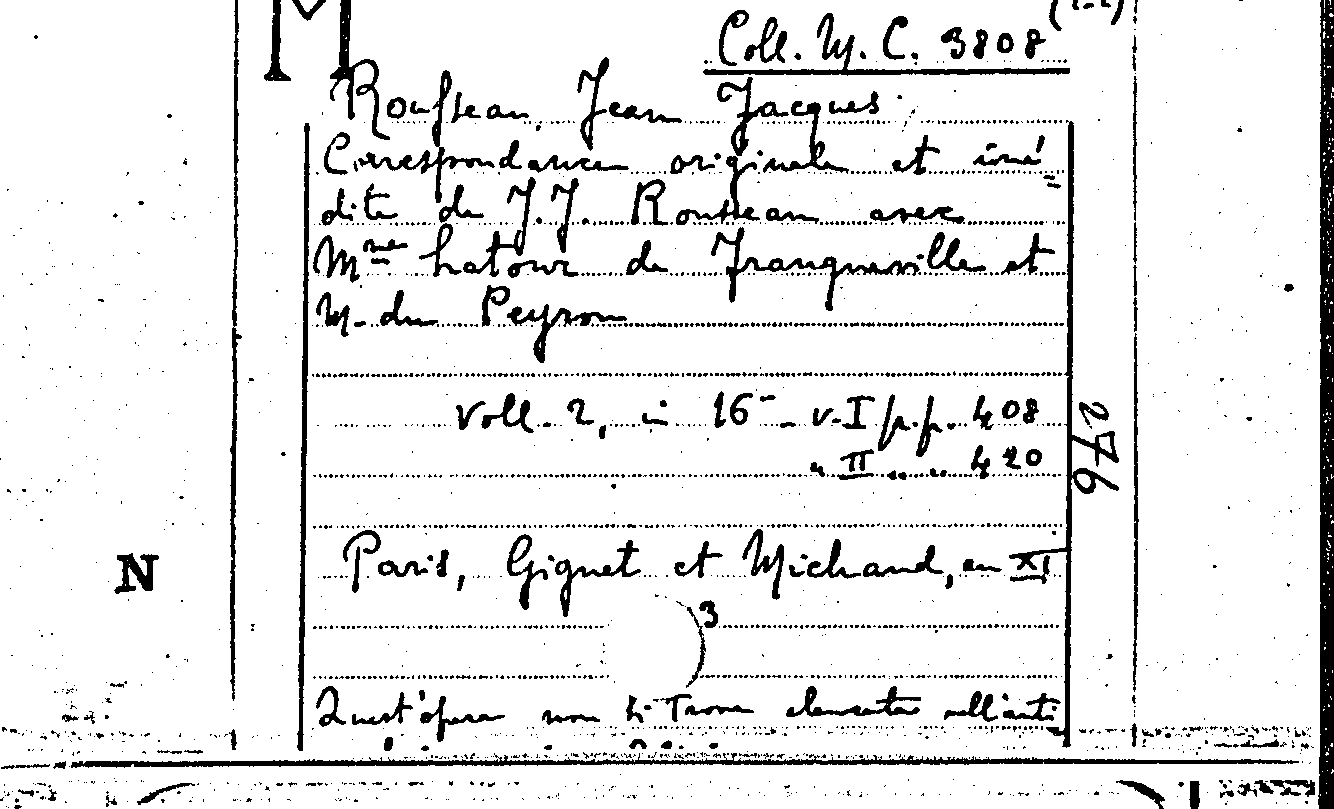 M
Coll. M. C. 3808
Rousseau, Jean Jacques
Correspondance originale et iné=
dite de J.J. Rousseau avec
Mme Latour de Franqueville et
M. du Peyrou
voll. 2, in 16° - v. I p.p. 408
" II " " 420
276
Paris, Giguet et Michaud, an XI
N
3
Quest'opera non si trova elencata nell'anti